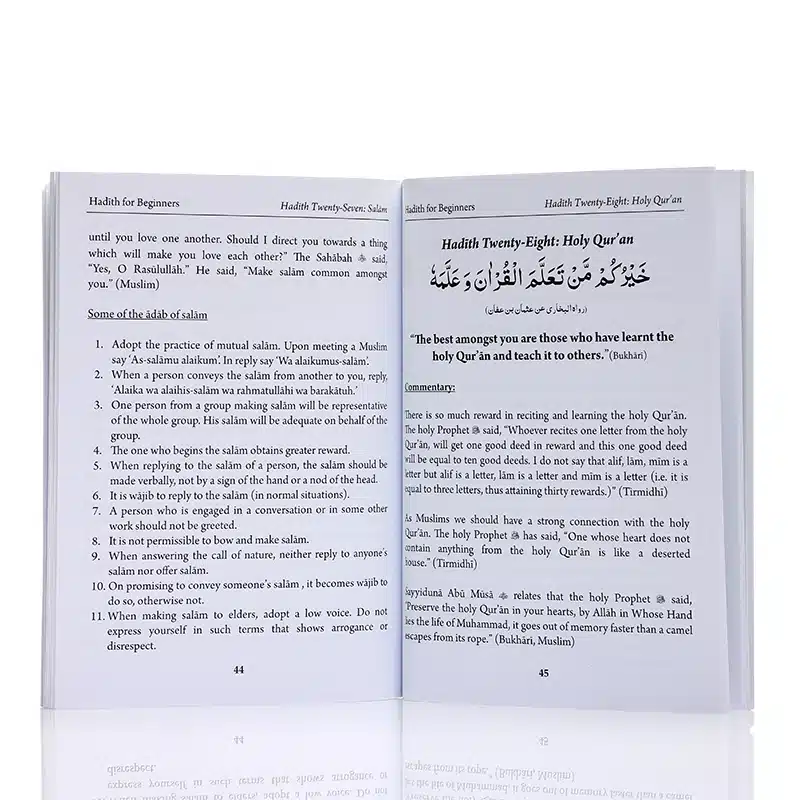 Hadīth for Beginners
Hadīth Twenty-Seven: Salām
until you love one another. Should I direct you towards a thing
which will make you love each other?” The Sahābah said,
“Yes, O Rasūlullāh.” He said, “Make salām common amongst
you.” (Muslim)
Some of the ādāb of salām
1. Adopt the practice of mutual salām. Upon meeting a Muslim
say ‘As-salāmu alaikum’. In reply say ‘Wa alaikumus-salām’.
2. When a person conveys the salām from another to you, reply,
‘Alaika wa alaihis-salām wa rahmatullāhi wa barakātuh.’
3. One person from a group making salām will be representative
of the whole group. His salām will be adequate on behalf of the
group.
4. The one who begins the salām obtains greater reward.
5. When replying to the salām of a person, the salām should be
made verbally, not by a sign of the hand or a nod of the head.
6. It is wājib to reply to the salām (in normal situations).
7. A person who is engaged in a conversation or in some other
work should not be greeted.
8. It is not permissible to bow and make salām.
9. When answering the call of nature, neither reply to anyone's
salām nor offer salām.
10. On promising to convey someone's salām , it becomes wājib to
do so, otherwise not.
11. When making salām to elders, adopt a low voice. Do not
express yourself in such terms that shows arrogance or
disrespect.
44
Hadīth for Beginners
Hadīth Twenty-Eight: Holy Qur'an
Hadīth Twenty-Eight: Holy Qur'an
خَيْرُكُمْ مَّنْ تَعَلَّمَ الْقُرْاٰنَ وَعَلَّمَهٗ
(رواه البخاري عن عثمان بن عفان)
“The best amongst you are those who have learnt the
holy Qur'ān and teach it to others.”(Bukhāri)
Commentary:
There is so much reward in reciting and learning the holy Qur'ān.
The holy Prophet ﷺ said, “Whoever recites one letter from the holy
Qur'ān, will get one good deed in reward and this one good deed
will be equal to ten good deeds. I do not say that alif, lām, mīm is a
letter but alif is a letter, lām is a letter and mīm is a letter (i.e. it is
equal to three letters, thus attaining thirty rewards.)” (Tirmidhī)
As Muslims we should have a strong connection with the holy
Qur'ān. The holy Prophet ﷺ has said, “One whose heart does not
contain anything from the holy Qur'ān is like a deserted
house.” (Tirmidhī)
Sayyidunā Abū Mūsā relates that the holy Prophet ﷺ said,
“Preserve the holy Qur'ān in your hearts, by Allāh in Whose Hand
lies the life of Muhammad, it goes out of memory faster than a camel
escapes from its rope.” (Bukhāri, Muslim)
45